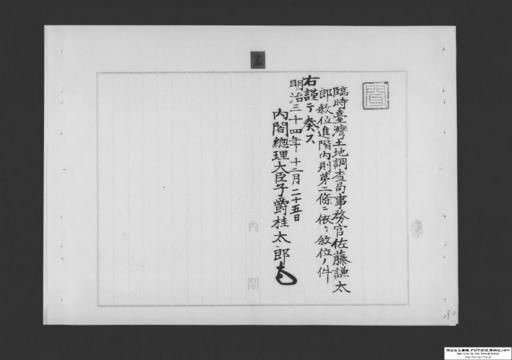 臨時臺灣土地調査局事務官佐藤謙太
郎敘位進階內則第二條ニ依リ敘位ノ件
右謹テ奏ス
明治三十四年十二月二十五日
內閣總理大臣子爵桂太郎
內閣